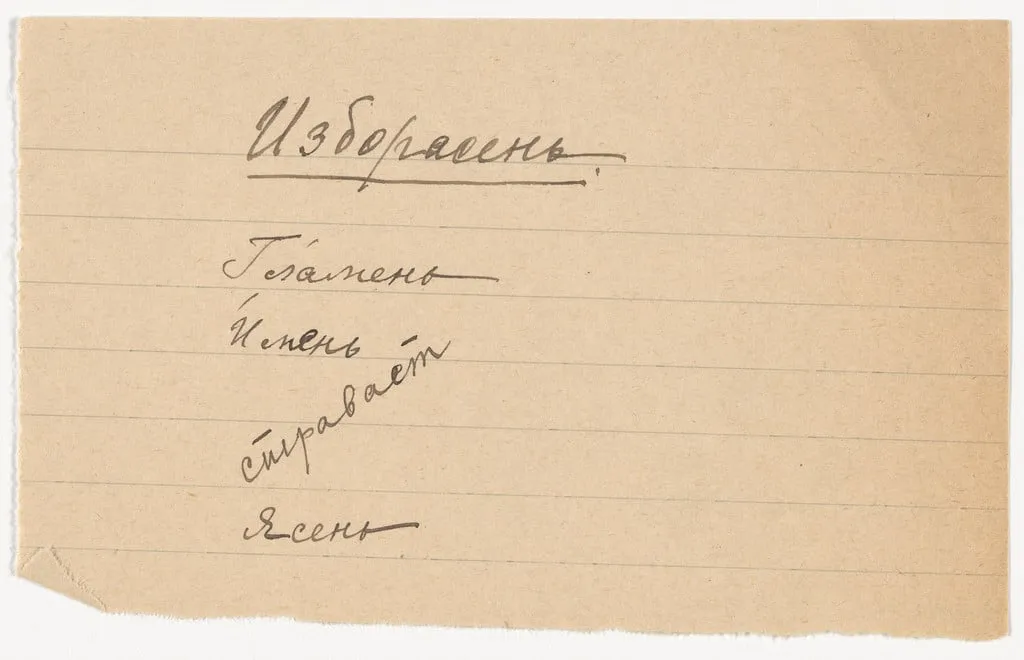 Изборасень.
Гла́мень
И́мень
стравает
Ясень